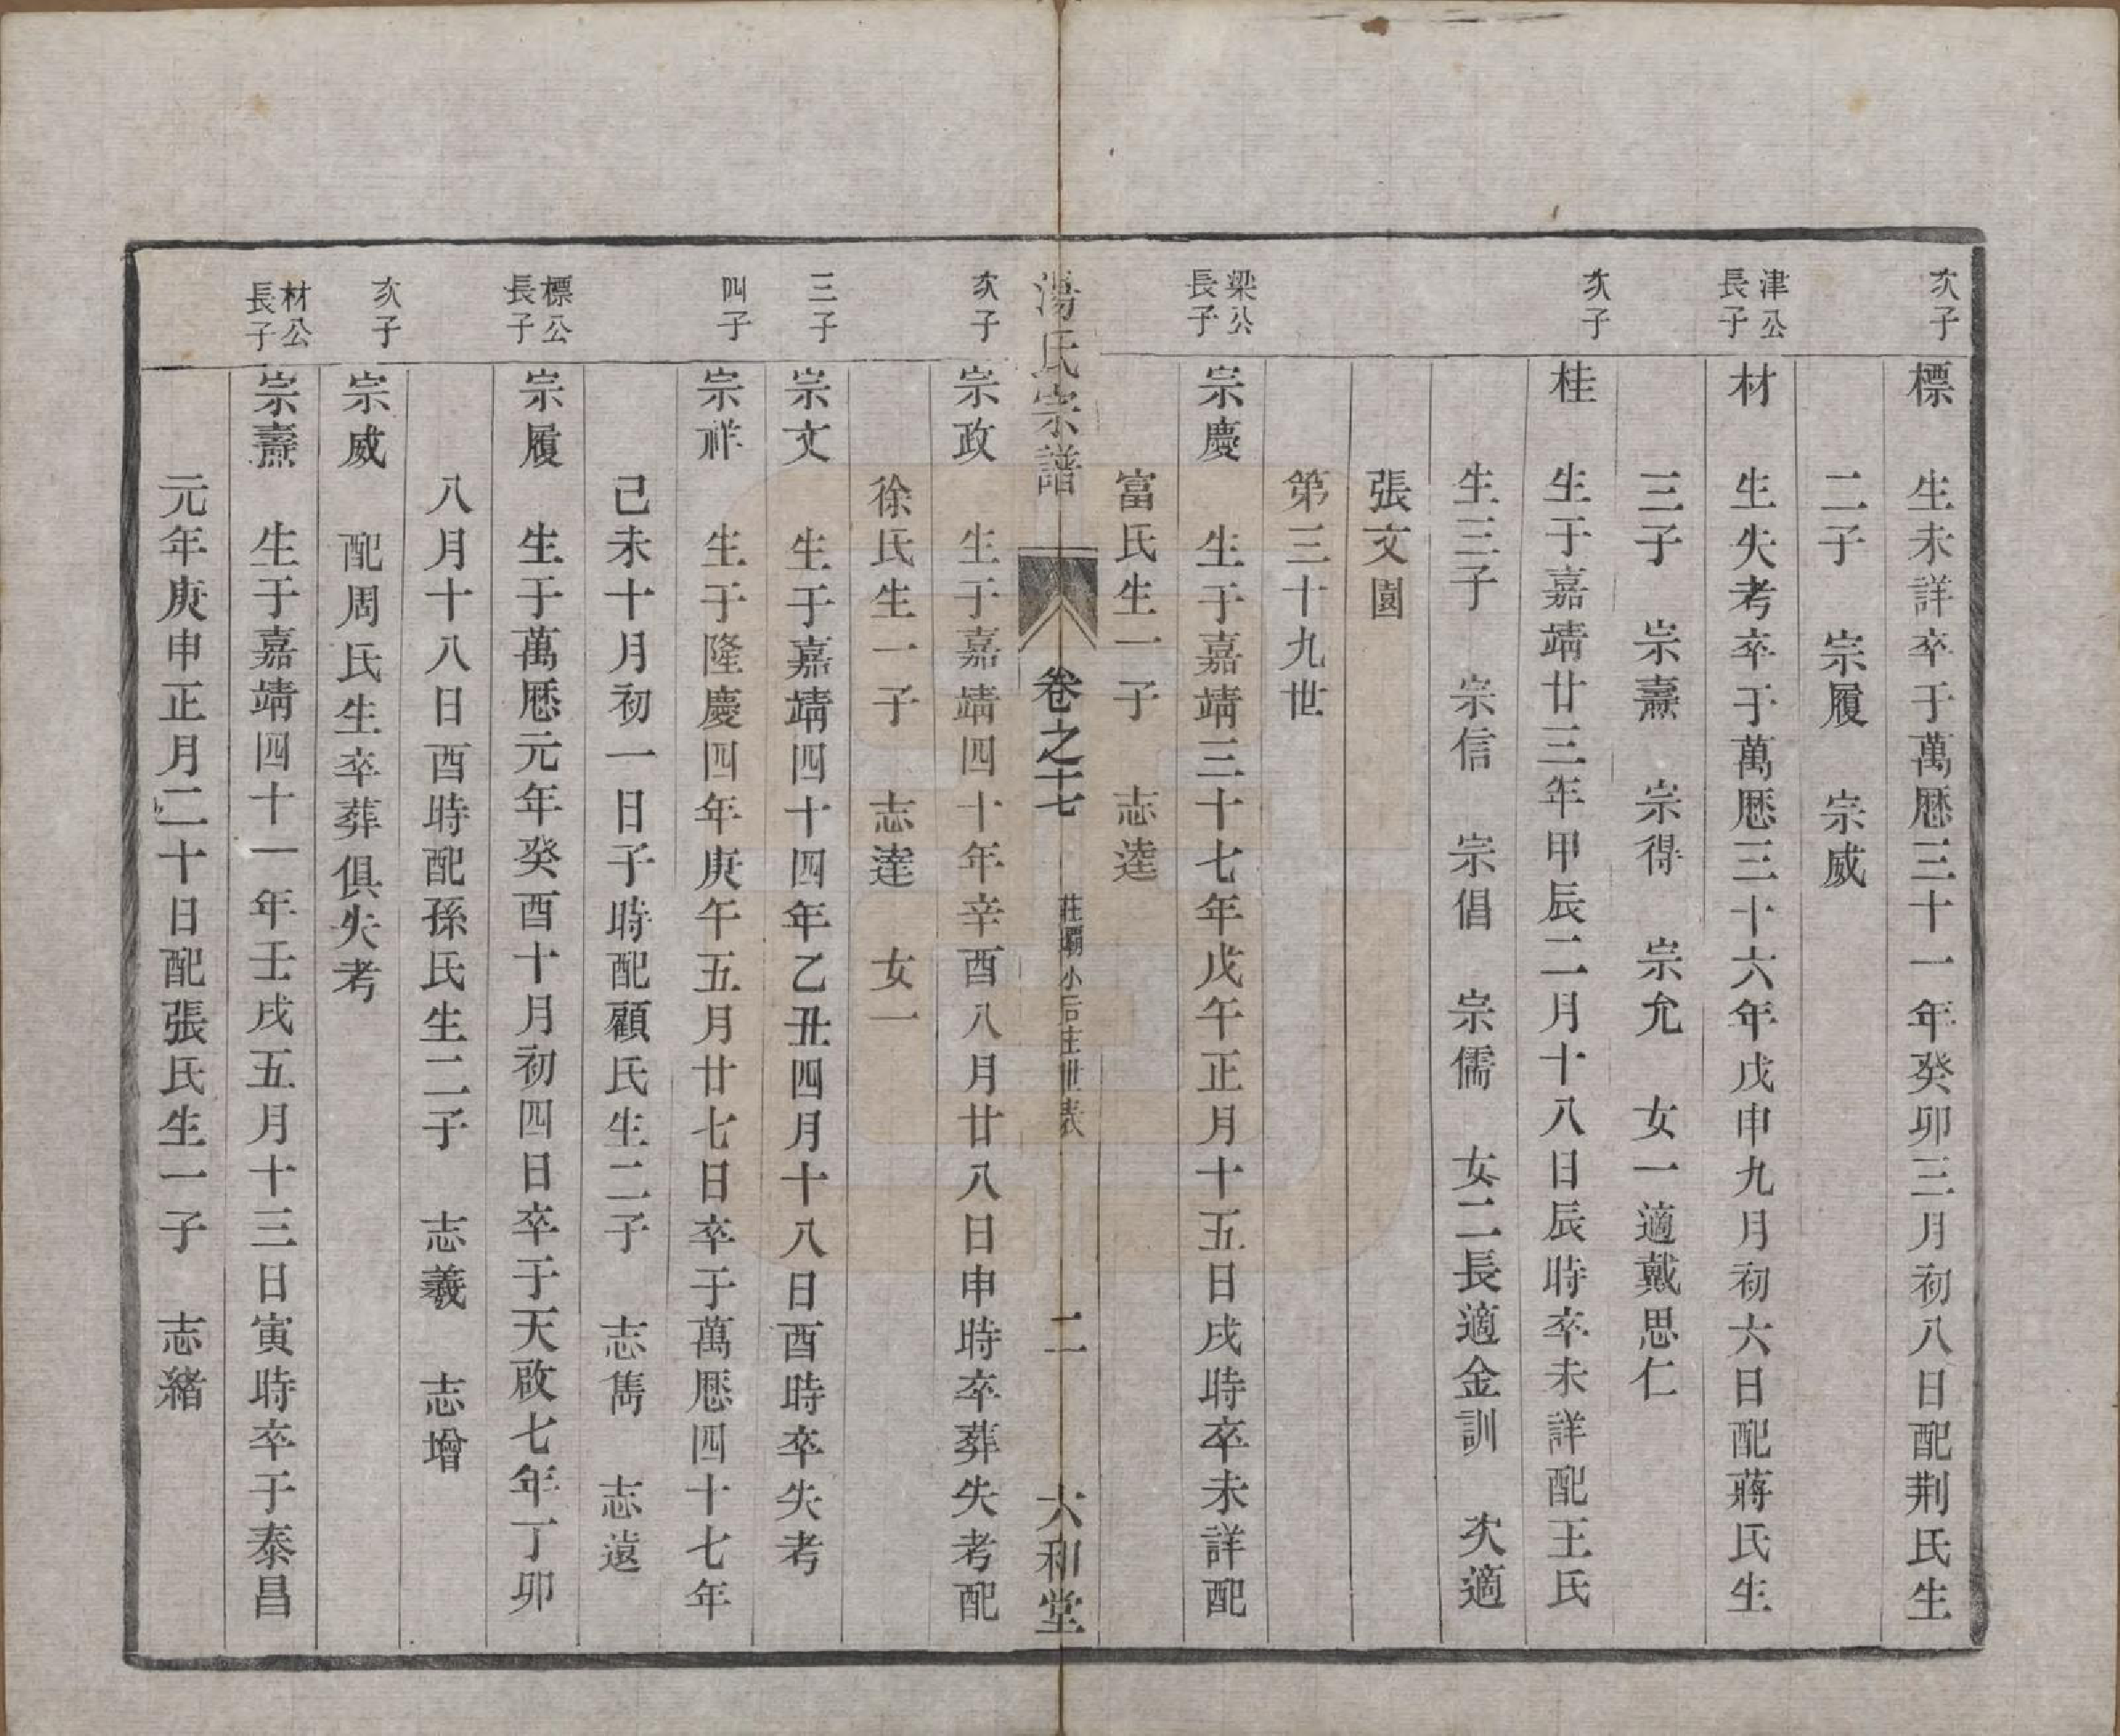 次子 標 生未詳卒于萬曆三十一年癸卯三月初八日配荆氏生
二子 宗履 宗威
津公長子 材 生失考卒于萬曆三十六年戊申九月初六日配蔣氏生
三子 宗燾 宗得 宗允 女一適戴思仁
次子 桂 生于嘉靖廿三年甲辰二月十八日辰時卒未詳配王氏
生三子 宗信 宗倡 宗儒 女二長適金訓 次適
張文園
第三十九世
梁公長子 宗慶 生于嘉靖三十七年戊午正月十五日戌時卒未詳配
富氏生一子 志逵
湯氏宗譜 卷之十七 莊壩小後莊世表 二 六和堂
次子 宗政 生于嘉靖四十年辛酉八月廿八日申時卒葬失考配
徐氏生一子 志達 女一
三子 宗文 生于嘉靖四十四年乙丑四月十八日酉時卒失考
四子 宗祥 生于隆慶四年庚午五月廿七日卒于萬曆四十七年
己未十月初一日子時配顧氏生二子 志雋 志遠
標公長子 宗履 生于萬曆元年癸酉十月初四日卒于天啟七年丁卯
八月十八日酉時配孫氏生二子 志羲 志增
次子 宗威 配周氏生卒葬俱失考
材公長子 宗燾 生于嘉靖四十一年壬戌五月十三日寅時卒于泰昌
元年庚申正月二十日配張氏生一子 志緒